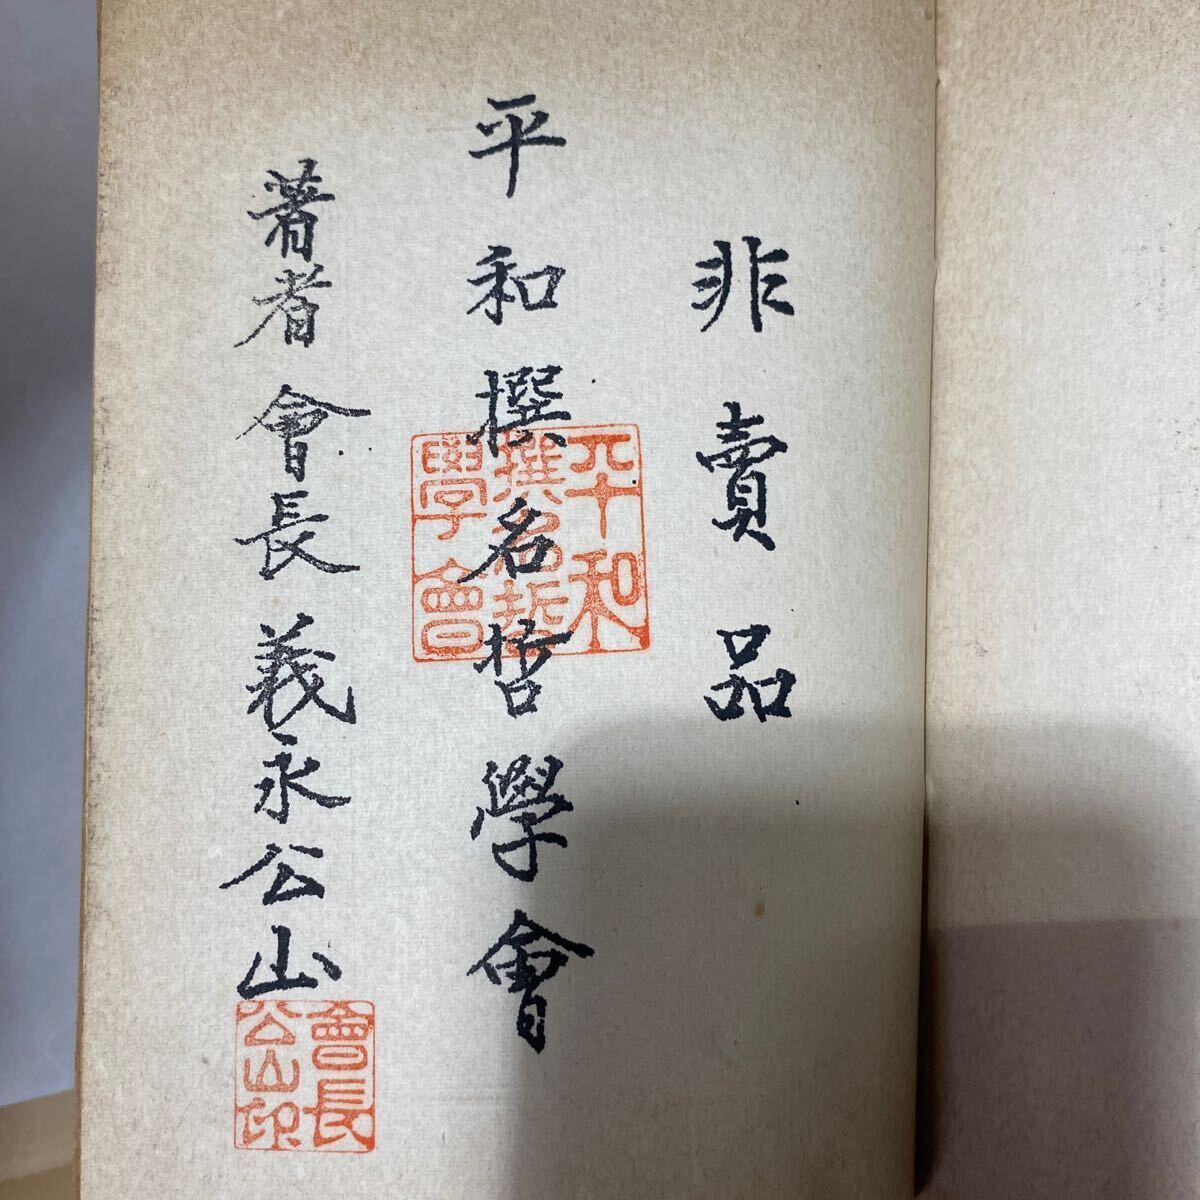 非賣品
平和撰名哲學會
平和
撰名哲
學會
著者會長義永公山
會長
公山印